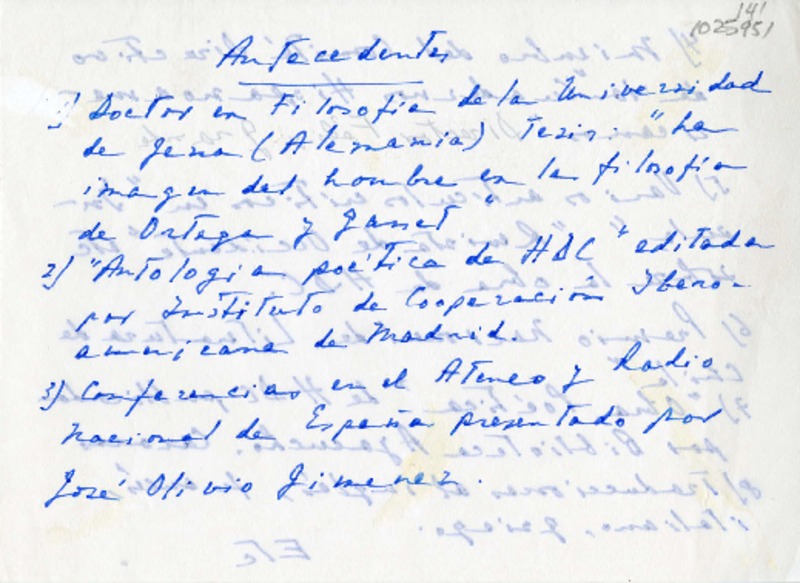 141
1025951
Antecedentes
1) Doctor en Filosofía de la Universidad
de Jena (Alemania) Tesis: "La
imagen del hombre en la filosofía
de Ortega y Gasset"
2) "Antología poética de HDC" editada
por Instituto de Cooperación Ibero-
americana de Madrid.
3) Conferencias en el Ateneo y Radio
Nacional de España presentado por
José Olivio Jimenez.